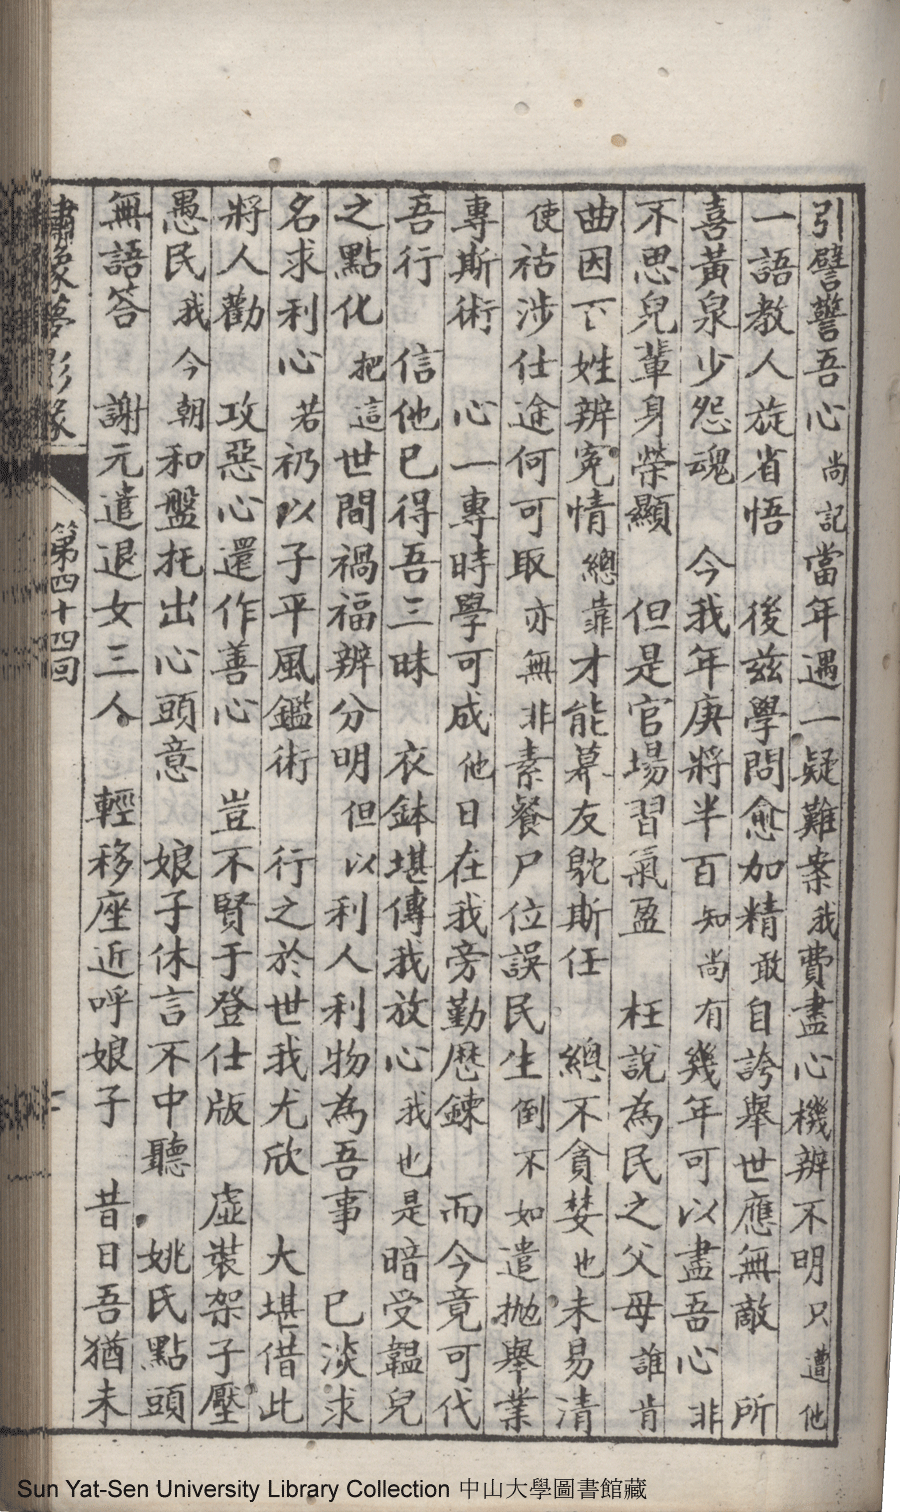 引譬警吾心尚記當年遇一疑難案我費盡心機辨不明只遭他
一語教人旋省悟　後兹學問愈加精敢自誇舉世應無敵　所
喜黃泉少怨魂　今我年庚將半百知尚有幾年可以盡吾心非
不思兒輩身榮顯　但是官場習氣盈　枉說為民之父母誰肯
曲因百姓辨冤情總靠才能幕友躭斯任　總不貪婪也未易清
使祜涉仕途何可取亦無非素餐尸位誤民生倒不如遣拋舉業
專斯術　心一專時學可成他日在我旁勤歷鍊　而今竟可代
吾行　信他已得吾三昧　衣鉢堪傳我放心我也是暗受韞兒
之點化把這世間禍福辨分明但以利人利物為吾事　已淡求
名求利心若礽以子平風鑑術　行之於世我尤欣　大堪借此
將人勸　攻惡心還作善心　豈不賢于登仕版　虛裝架子壓
愚民我今朝和盤托出心頭意　娘子休言不中聽　姚氏點頭
無語答　謝元遣退女三人　輕移座近呼娘子　昔日吾猶未
繡像夢影緣　第四十四回